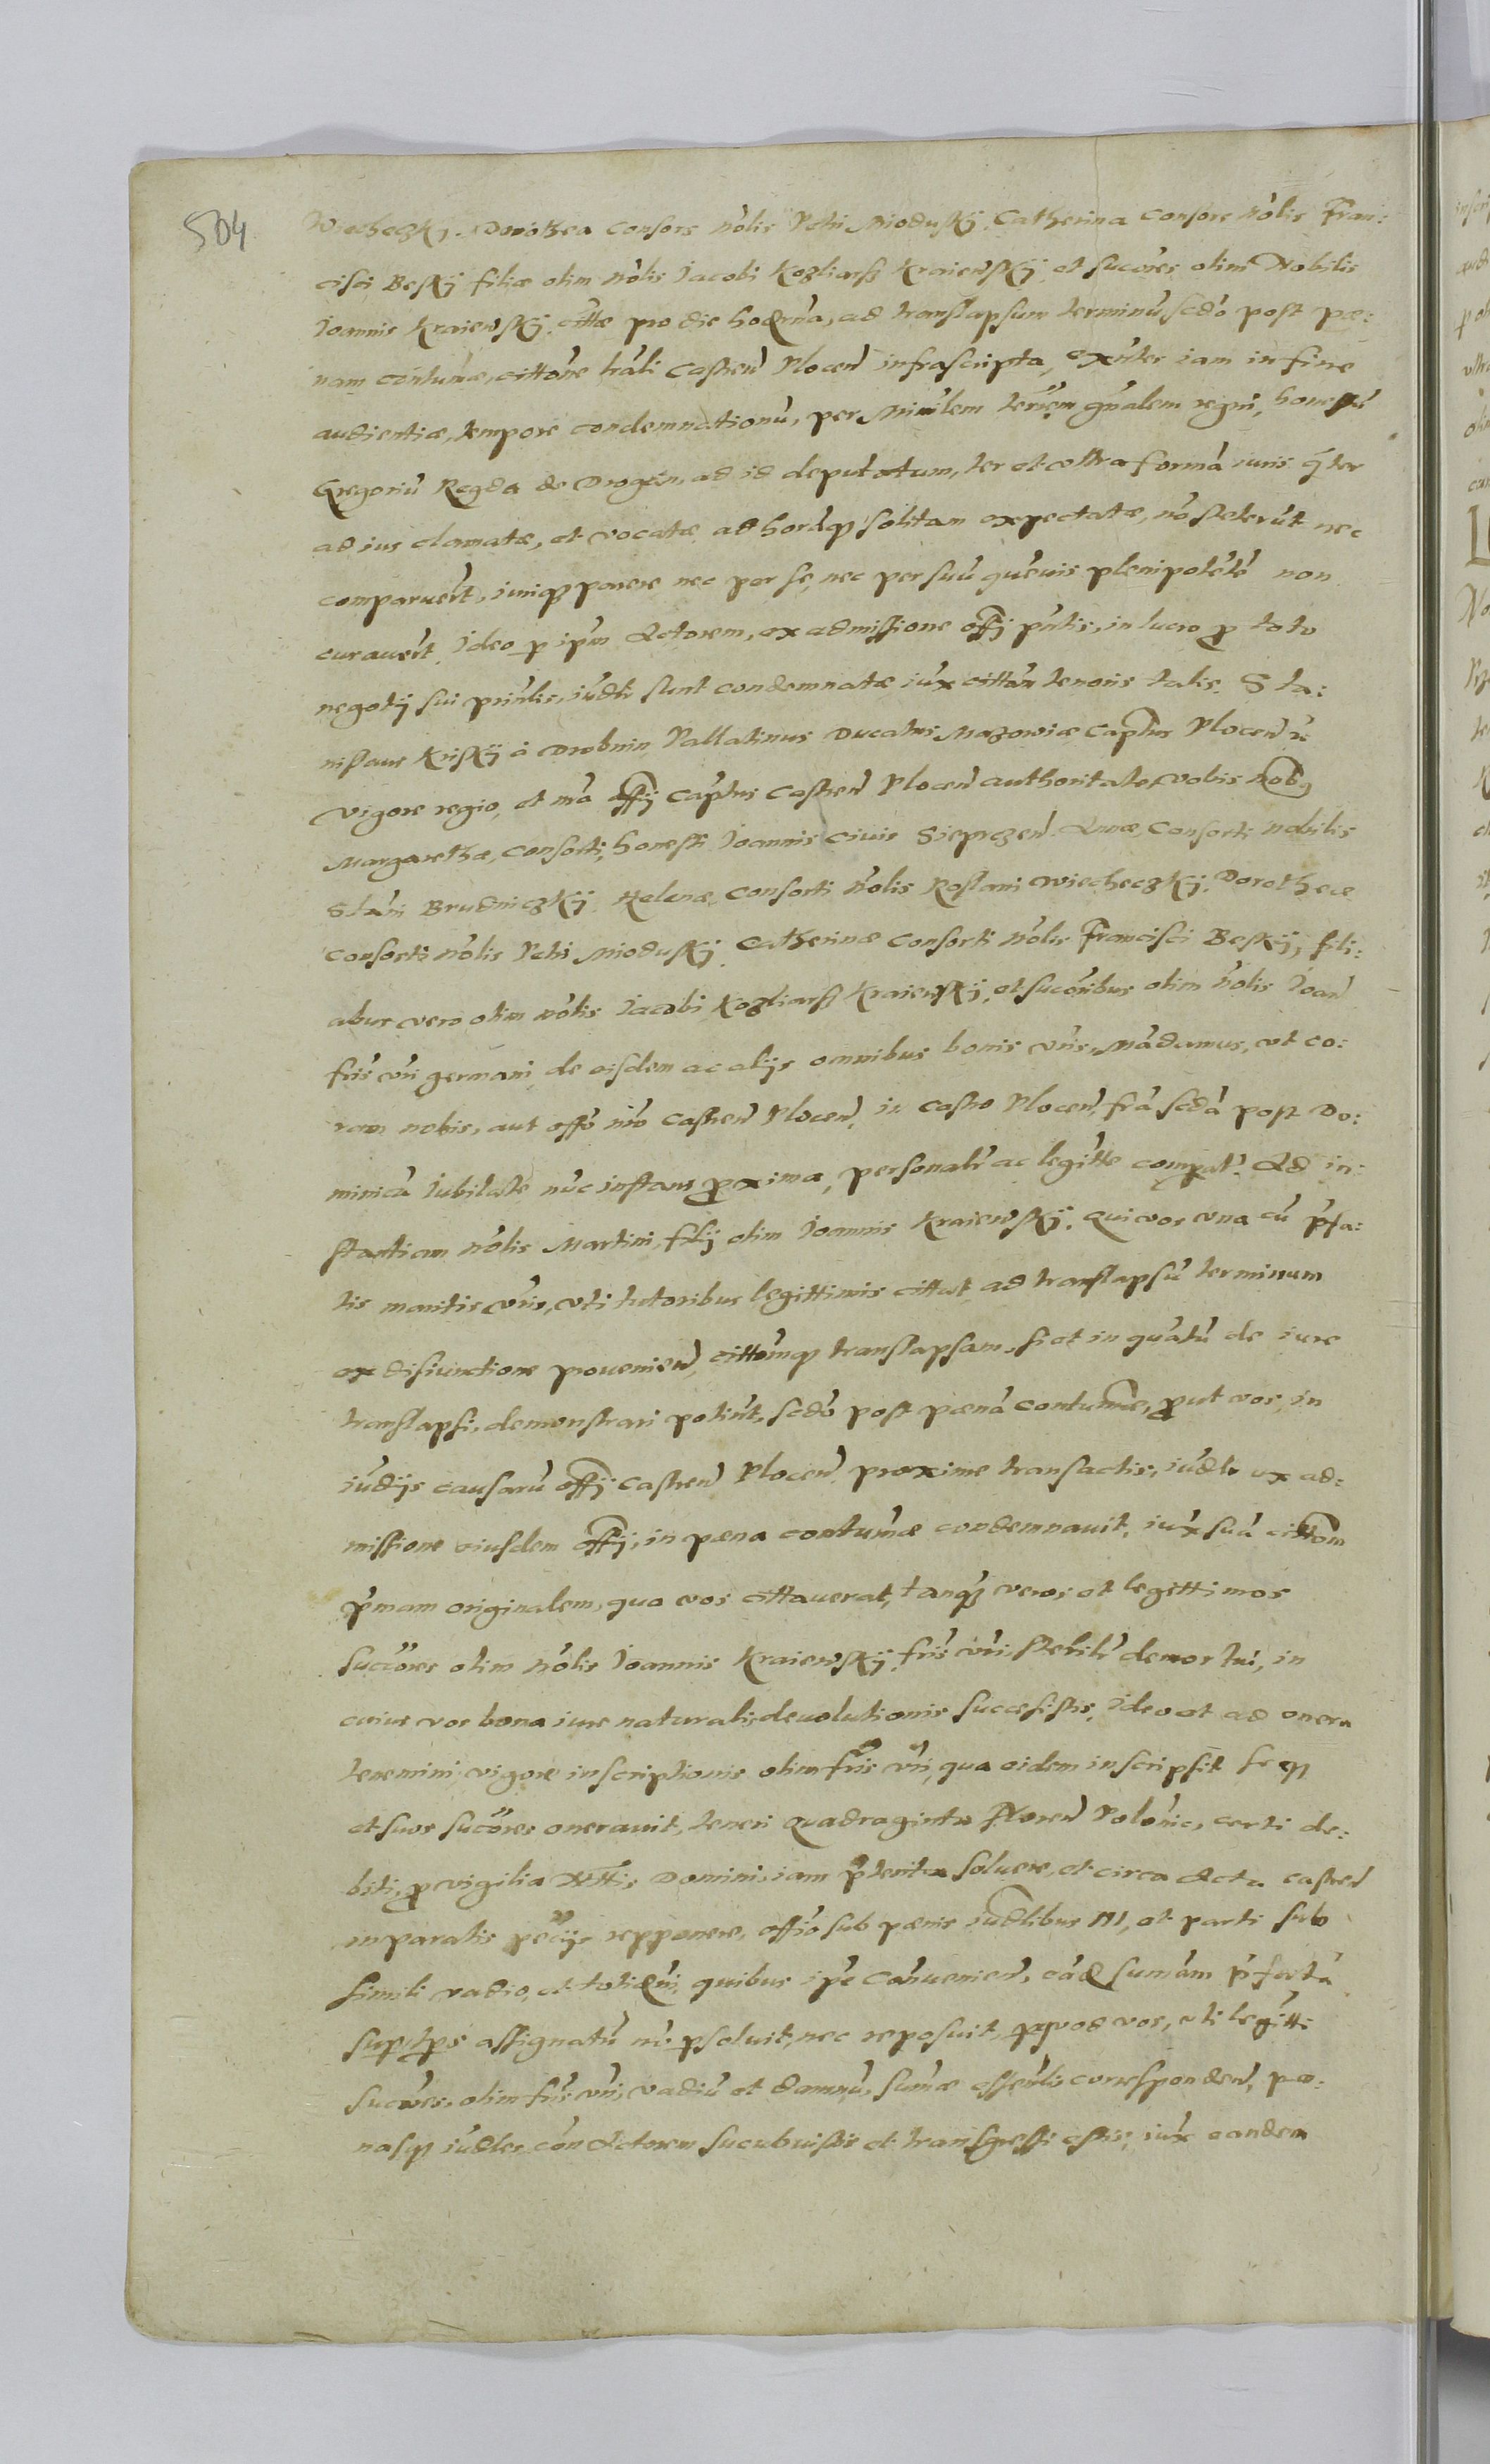 504
Wiecheczkÿ. Dorothea consors nolis Petri Mioduskÿ. Catherina consors nolis Fran:
cisci Beskÿ filiæ olim nolis Jacobi Kozliarß Kraiewskÿ, et sucores olim Nobilis
Joannis Kraiewskÿ. cittæ pro die hoderna, ad translapsum terminũ scdo post pæ:
nam contumæ, cittone trali Castren Plocen infrascripta, exnter iam in fine
audientiæ, tempore condemnationũ, per Minrlem terrem gnalem regni, honestũ
Gregoriũ Regda de Drogin, ad id deputatum, ter et contra formã iuris qter
ad ius clamatæ, et vocatæ ad horãqꝫ solitam expectatæ, nõ steterũt nec
comparuert, iuriqꝫ parere nec per se, nec per suũ quẽuis plenipotẽtẽ non
curauert. Ideo p ipm Actorem, ex admissione offÿ pntis, in lucro ꝓ toto
negotÿ sui prinlis, iudtr sunt condemnatæ iux cittõm tenoris talis. Sta:
nislaus Kriskÿ à Drobnin Pallatinus Ducatus Mazowiæ Captus Plocen zc
vigore regio, et mã offÿ Captus Castren Plocen authoritate, vobis nobꝫ
Margarethæ, consorti, honesti Joannis civis Sieprczen. Annæ, Consorti nobilis
Stani Brudniczkÿ. Helenæ, consorti nolis Roslani Wiecheczkÿ. Dorotheæ
consorti nolis Petri Mioduskÿ. Catherinæ consorti nolis Francisci Beskÿ, fili:
abus vero olim nolis Jacobi Kozliarß Kraiewskÿ, et sucoribus olim nolis Joan
fris vri germani, de eisdem ac alÿs omnibus bonis vris, mãdamus, vt co:
ram nobis, aut offo nro Castren Plocen, in castro Plocen, frã scdã post Do:
minicã Iubilate nũc instans ꝓxima, personalr ac legitte compat. Ad in:
stantiam nolis Martini, filÿ olim Joannis Kraiewskÿ. Qui vos vna cũ pfa:
tis maritis vris, vti tutoribus legittimis cittat, ad translapsũ terminum
ex disiunctione prouenien, cittõmqꝫ translapsam, si et in quãtũ de iure
translapsi, demonstrari poterit, scdo post pænã contumæ, ꝓut vos, in
iudÿs causarũ offÿ castren Plocen proxime transactis, iudtr ex ad:
missione eiusdem offÿ, in pæna contumæ condemnauit, iux suã cittõm
pmam originalem, qua vos cittauerat, tanqꝫ veros et legittimos
sucores olim nolis Joannis Kraiewskÿ, fris vri sterilr demortui, in
cuius vos bona iure naturalis deuolutionis successistis, ideo et ad onera
tenemini vigore inscriptionis olim fris vri, qua eidem inscripsit se qꝫ
et suos sucores onerauit, teneri quadraginta floren Polonic, certi de:
biti, ꝓ vigilia Nttis Domini, iam pterita soluere, et circa Acta castren
in paratis pecÿs repponere, offo sub pænis iudlibus ///, et parti sub
simili vadio, et totidem, quibus ipe contrauenien, eãd sumam pfatã
sup tps assignatũ nõ psoluit, nec reposuit, ꝓ quod vos, vti legitti
sucores, olim fris vri, vadiũ et damnũ, sumæ essenli corresponden, pæ:
nasqꝫ iudles con Actorem sucubuistis et transgressi estis, iux eandem